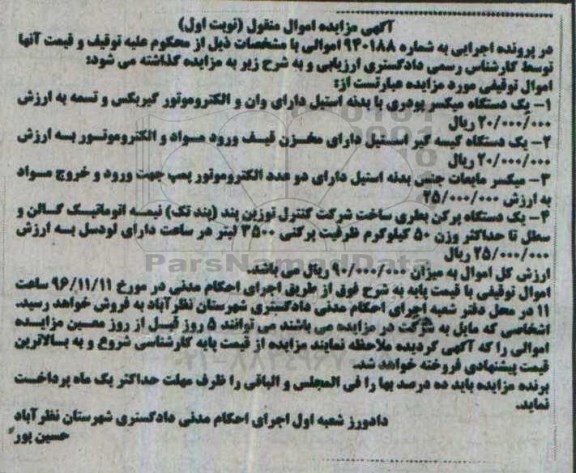 آگهی مزایده اموال منقول (نوبت اول)
در پرونده اجرایی به شماره ۹۴۰۱۸۸ اموالی با مشخصات ذیل از محکوم علیه توقیف و قیمت آنها
توسط کارشناس رسمی دادگستری ارزیابی و به شرح زیر به مزایده گذاشته می شود:
اموال توقیفی مورد مزایده عبارتست از:
۱- یک دستگاه میکسر پودری با بدنه استیل دارای وان و الکتروموتور گیربکس و تسمه به ارزش
۲۰/۰۰۰/۰۰۰ ریال
۲- یک دستگاه کیسه گیر استیل دارای مخزن قیف ورود مواد و الکتروموتور به ارزش
۲۰/۰۰۰/۰۰۰ ریال
۳- میکسر مایعات جنس بدنه استیل دارای دو عدد الکتروموتور پمپ جهت ورود و خروج مواد
به ارزش ۲۵/۰۰۰/۰۰۰
۴- یک دستگاه پرکن بطری ساخت شرکت کنترل توزین پند (پند تک) نیمه اتوماتیک گالن و
سطل تا حداکثر وزن ۵۰ کیلوگرم ظرفیت پرکنی ۳۵۰۰ لیتر در ساعت دارای لودسل به ارزش
۲۵/۰۰۰/۰۰۰ ریال
ارزش کل اموال به میزان ۹۰/۰۰۰/۰۰۰ ریال می باشند.
اموال توقیفی با قیمت پایه به شرح فوق از طریق اجرای احکام مدنی در مورخ ۹۶/۱۱/۱۱ ساعت
۱۱ در محل دفتر شعبه اجرای احکام مدنی دادگستری شهرستان نظرآباد به فروش خواهد رسید.
اشخاصی که مایل به شرکت در مزایده می باشند می توانند ۵ روز قبل از روز معین مزایده
اموالی را که آگهی گردیده ملاحظه نمایند مزایده از قیمت پایه کارشناسی شروع و به بالاترین
قیمت پیشنهادی فروخته خواهد شد.
برنده مزایده باید ده درصد بها را فی المجلس و الباقی را ظرف مهلت حداکثر یک ماه پرداخت
نماید.
دادورز شعبه اول اجرای احکام مدنی دادگستری شهرستان نظرآباد
حسین پور
ParsNamadData